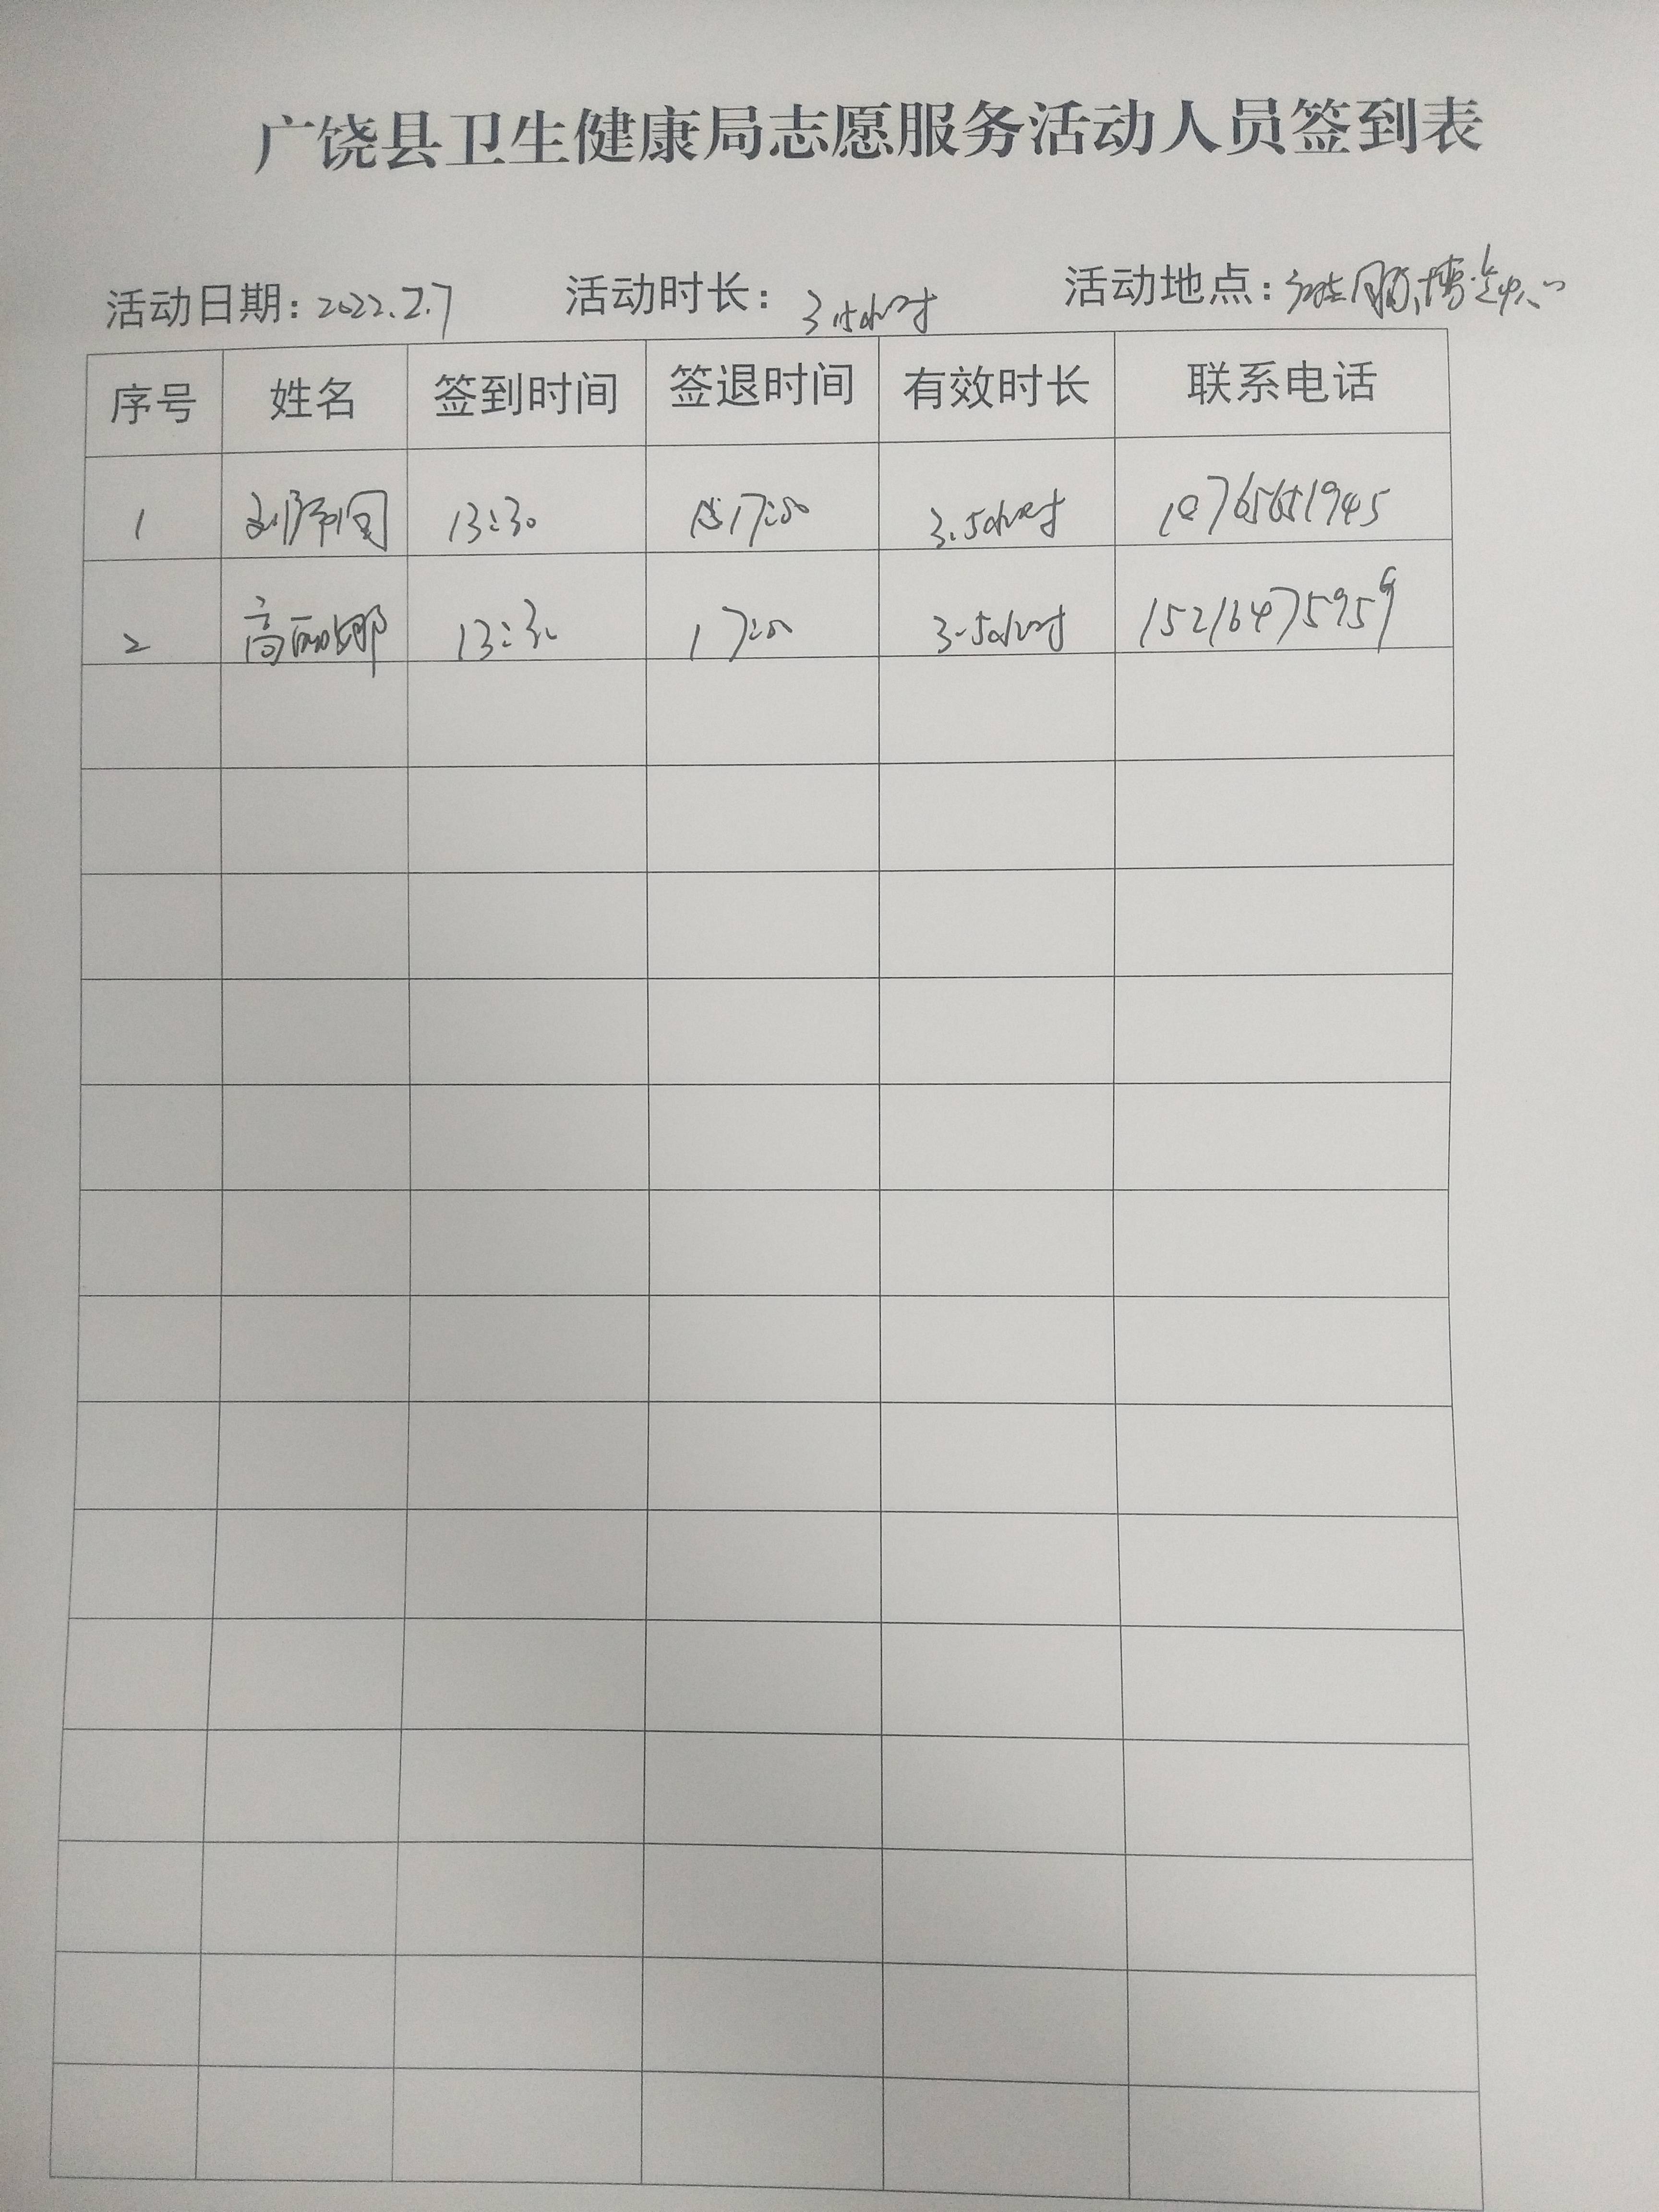 广饶县卫生健康局志愿服务活动人员签到表
活动日期：2022.2.7 活动时长：3.5小时 活动地点：
序号 姓名 签到时间 签退时间 有效时长 联系电话
1 13:30 17:00 3.5小时
2 高丽娜 13:30 17:00 3.5小时 15216475959